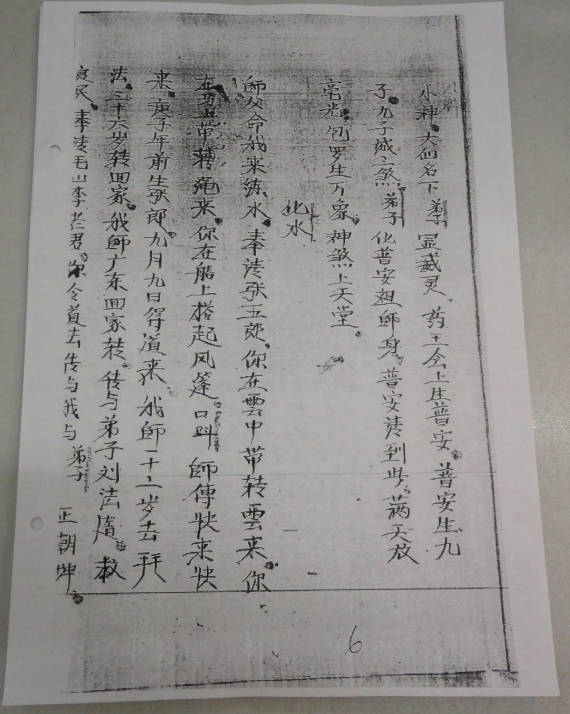 水神大仙名下弟子显威灵、药王今上生普安。普安生九
子九子城之煞。弟子化普安祖師身。普安请到此。满天放
毫光包罗生万象。神煞上天堂。
化水
師父命我来练水。奉请张五郎。你在雲中带转雲来。你
在带转绳来。你在船上搭起风篷。口叫師傅快来快
来。庚子年前生张郎。九月九日得道来。我師一十二岁去拜
法。三十六岁转回家。我師广东回家转。传与弟子刘法
良民。奉请毛山李老君。令道去传与我与弟子正朝坤。
6